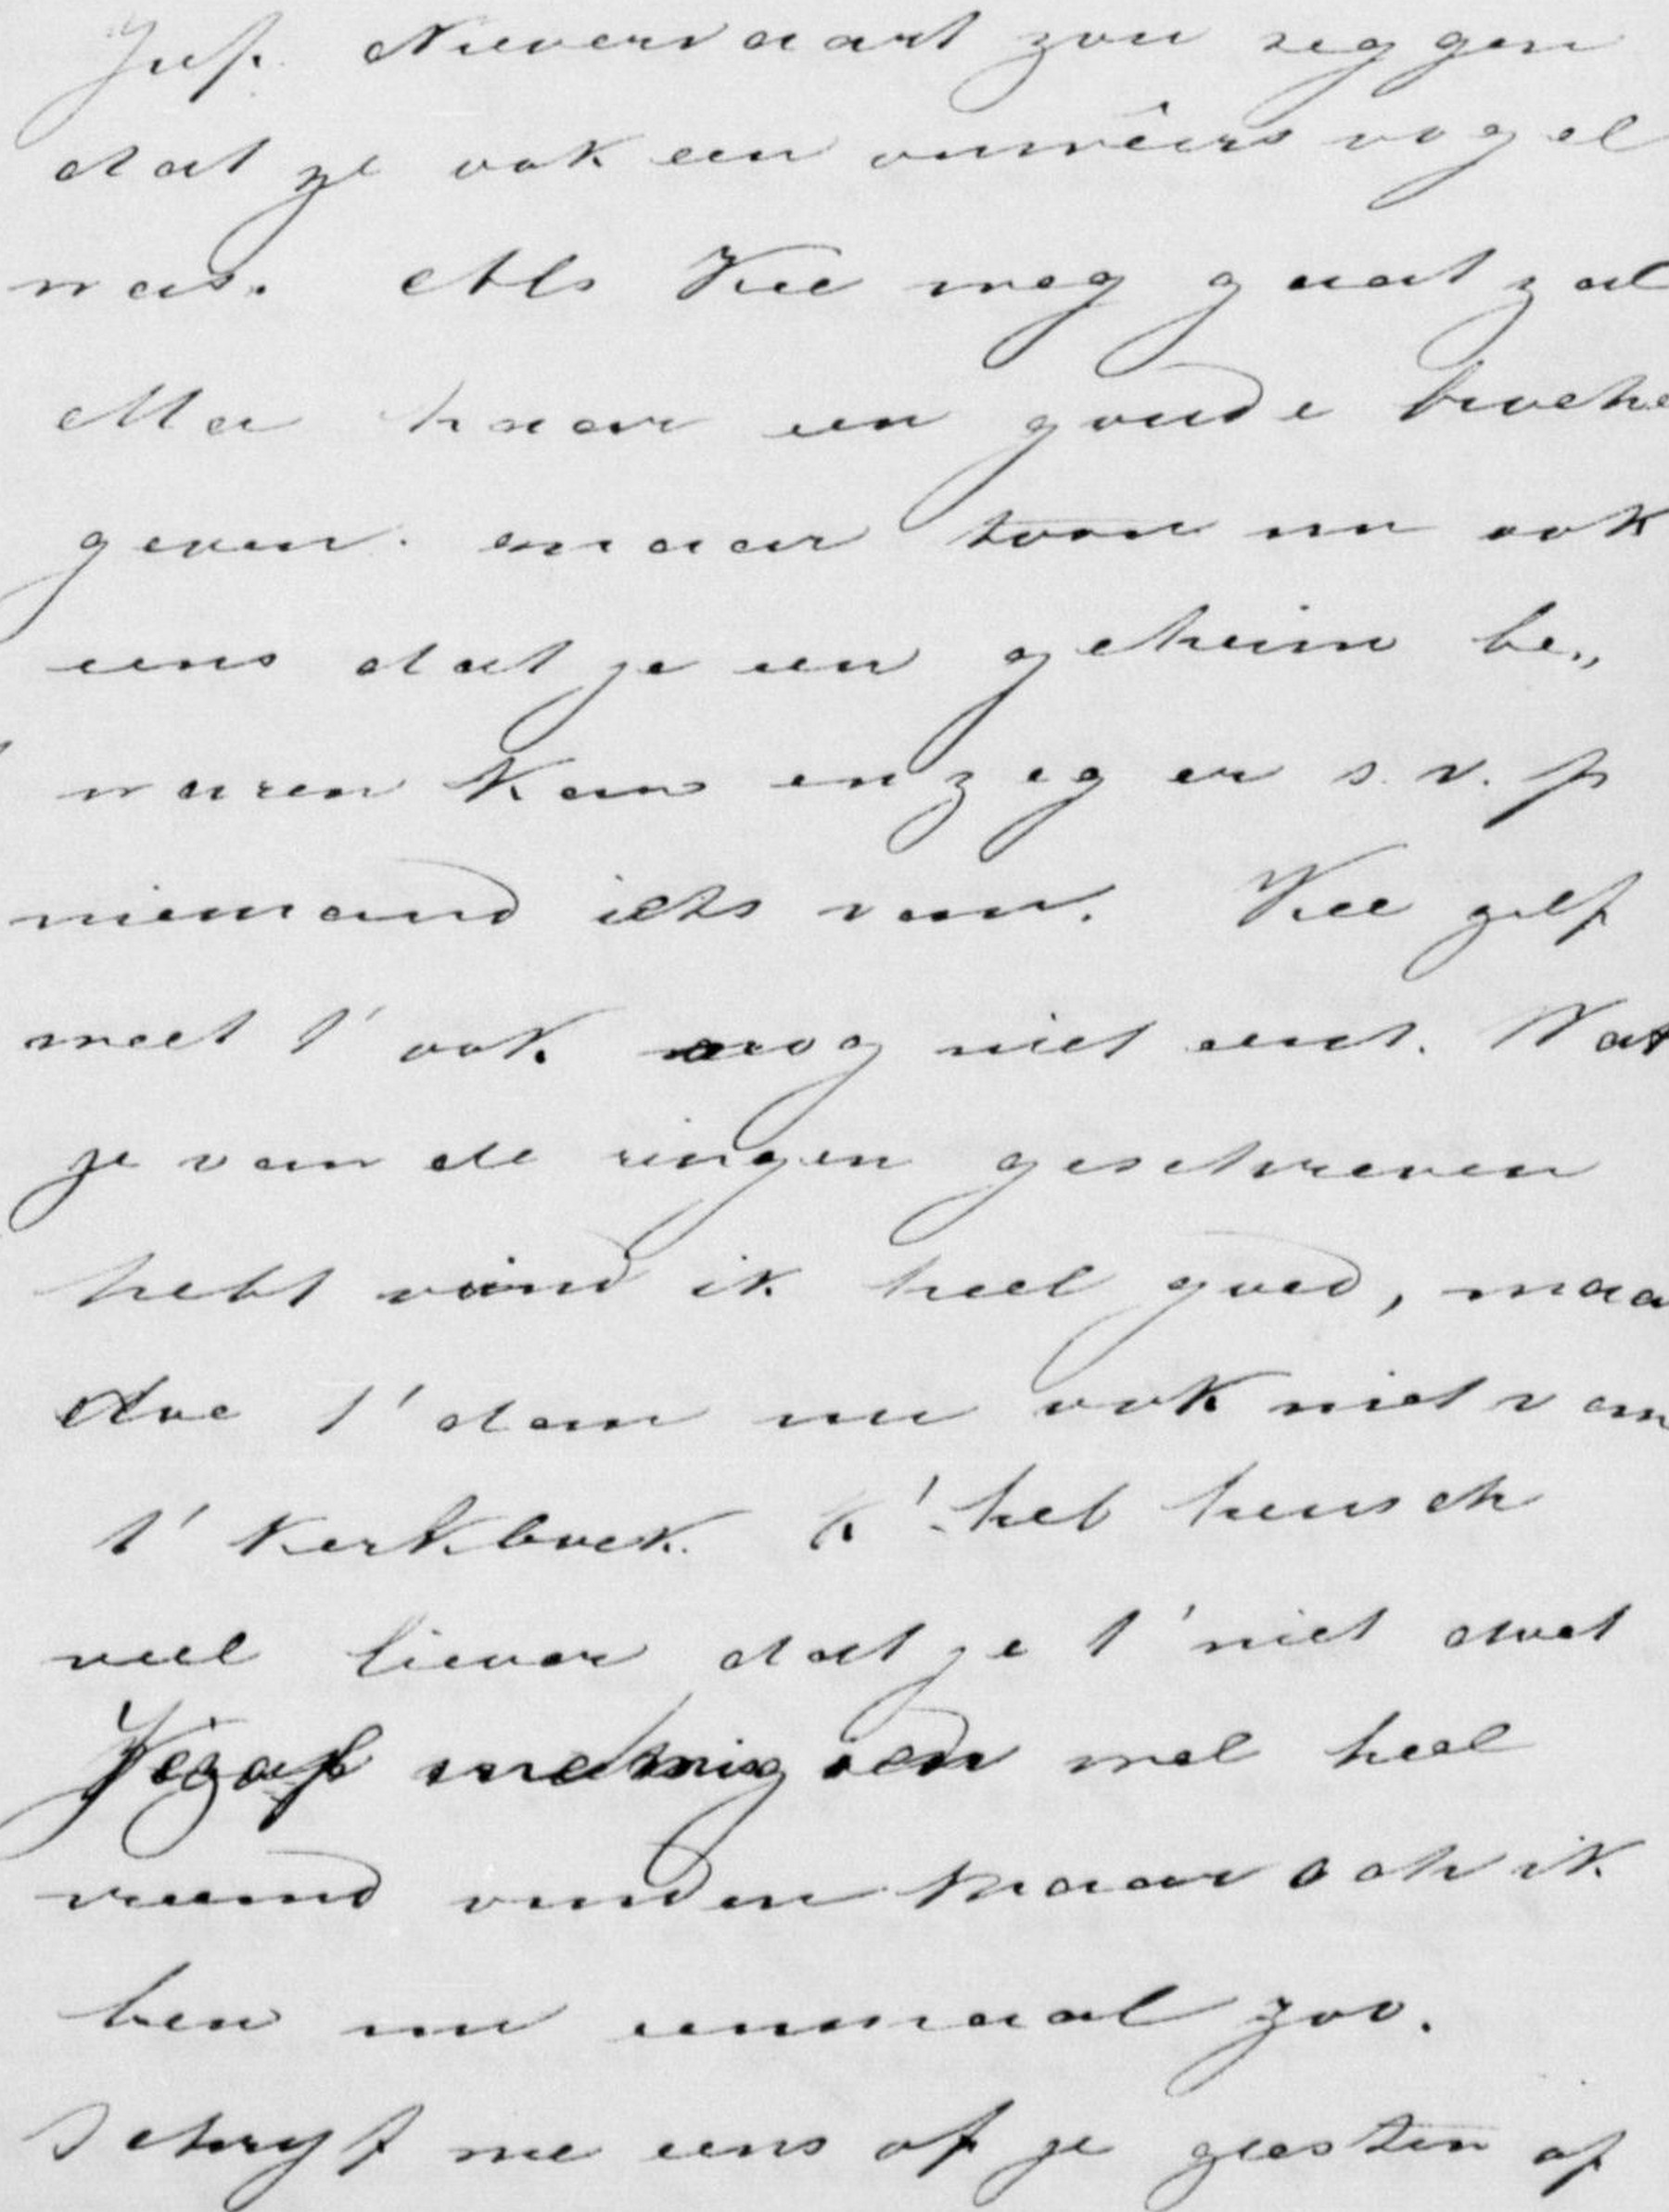 Juf. Nieuwervaart zou zeggen
dat ze ook een onweêrsvogel
was. Als Kee weg gaat zal
Ma haar een goude broche
geven. maar toon nu ook
eens dat je een geheim be„
waren kan en zeg er s.v.p
niemand iets van. Kee zelf
weet t' ook nog niet eens. Wat
je van de ringen geschreven
hebt vind ik heel goed, maa
doe t' dan nu ook niet van
t' Kerkboek. k' heb heusch
veel liever dat je t' niet doet
wel heel
vreemd vinden maar och ik
ben nu eenmaal zoo.
Schryf me eens of je gisten of